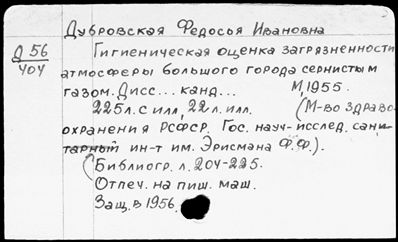 Дубровская Федосья Ивановна
Д 56
404
Гигиеническая оценка загрязненности
атмосферы большого города сернистым
газом. Дисс... канд... М, 1955.
225 л. с илл, 22 л. илл. (М-во здраво-
охранения РСФСР. Гос. науч-исслед. сани-
тарный ин-т им. Эрисмана Ф.Ф.).
Библиогр. л. 204-225.
Отпеч. на пиш. маш.
Защ. в 1956.